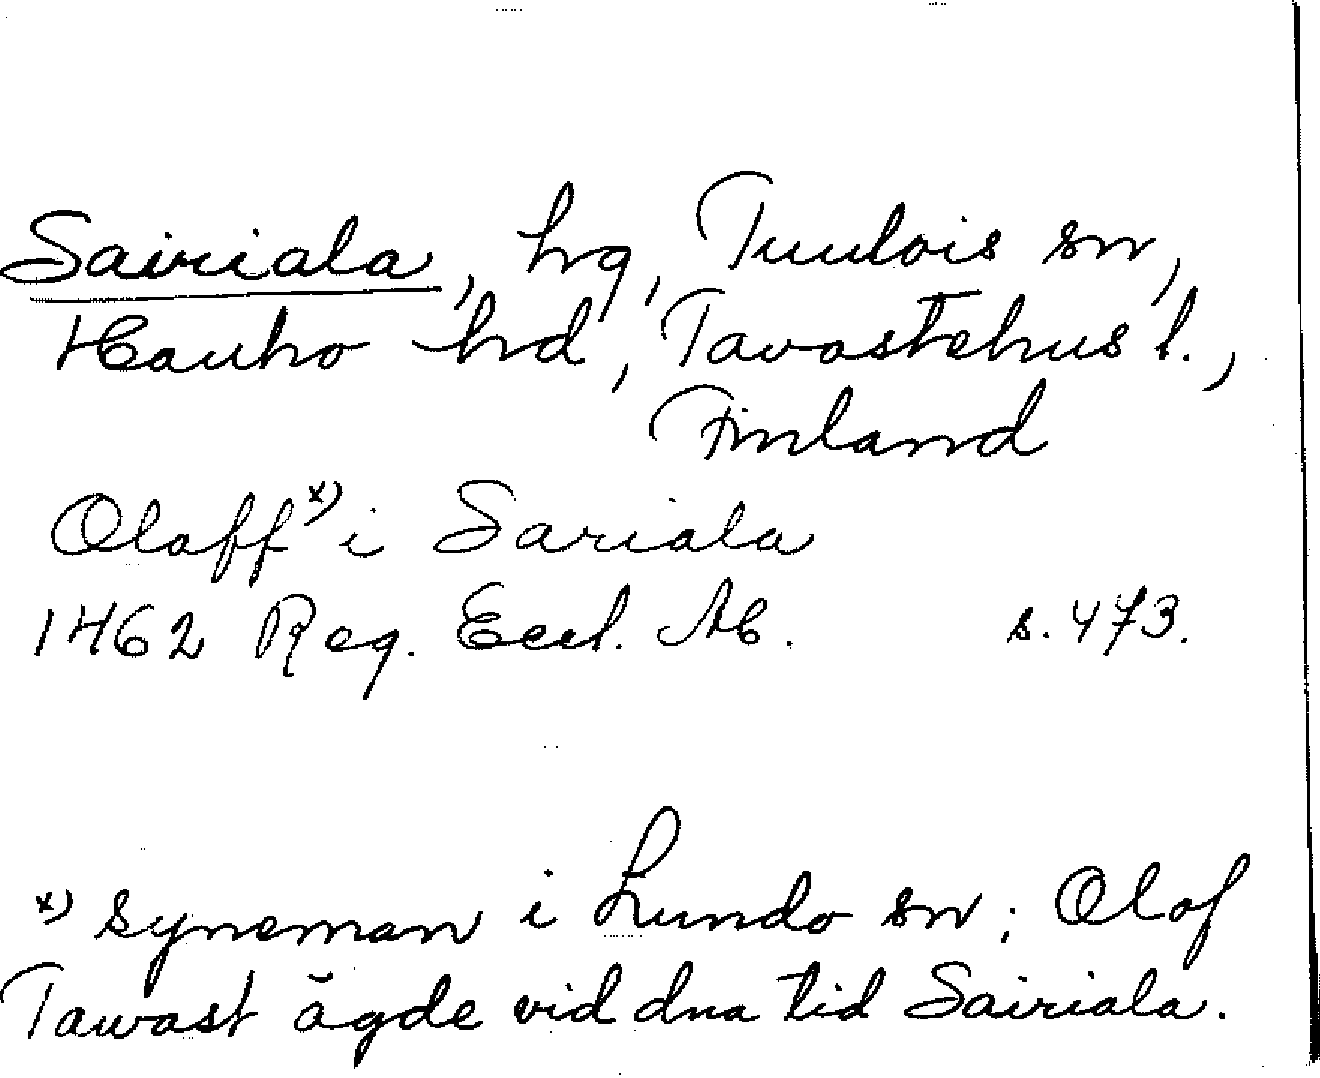 Sairiala, hg, Tuulois sn,
Hauho hd, Tavastehus l.,
Finland
Olaff x) i Sariala
1462 Reg. Eccl. Ab. s. 473.
x) syneman i Lundo sn; Olof
Tawast ägde vid dna tid Sairiala.